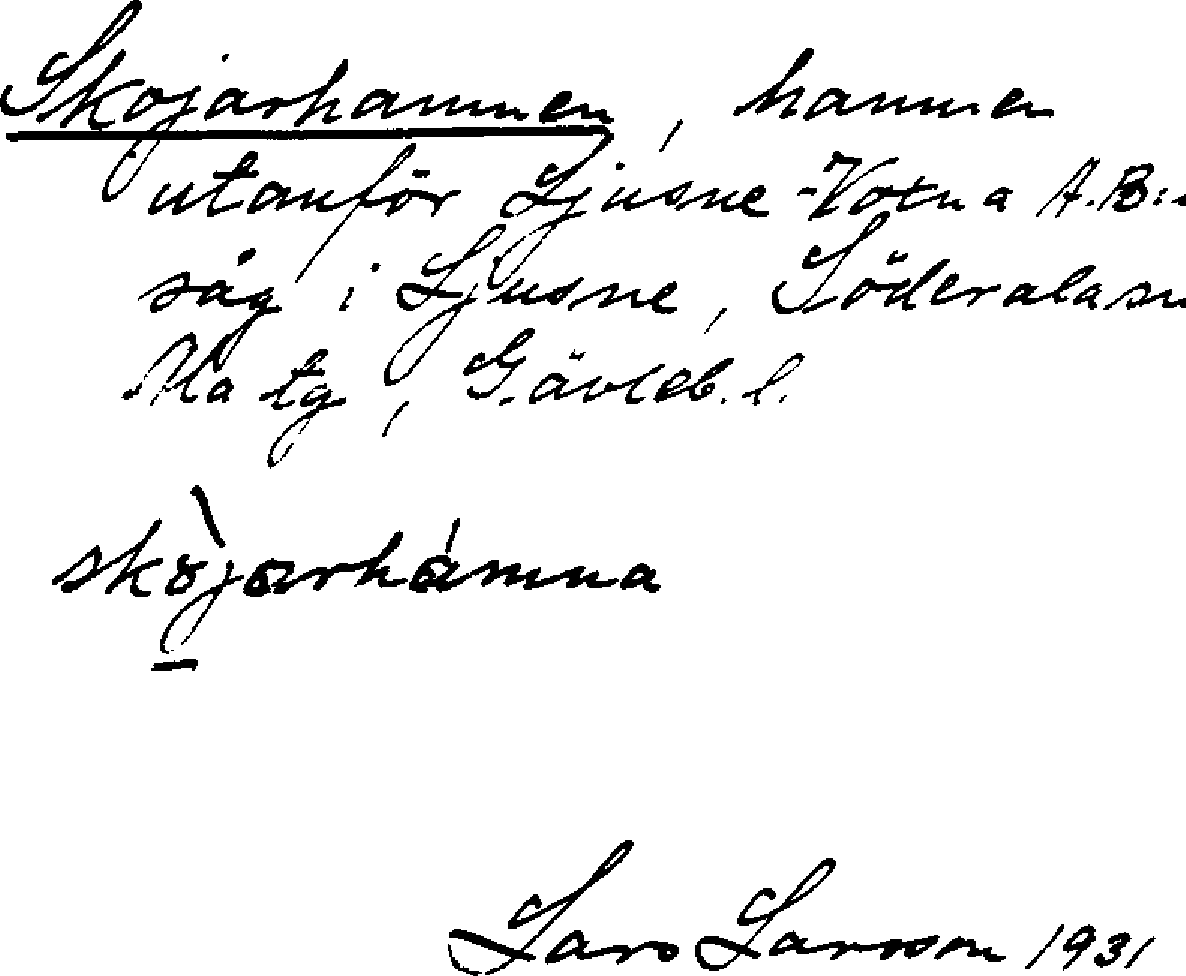 Skojarhamnen, hamnen
utanför Ljusne-Voxna A.B:s
såg i Ljusne, Söderala sn
Ala tg, Gävleb. l.
skòjarhámna
Lars Larsson 1931